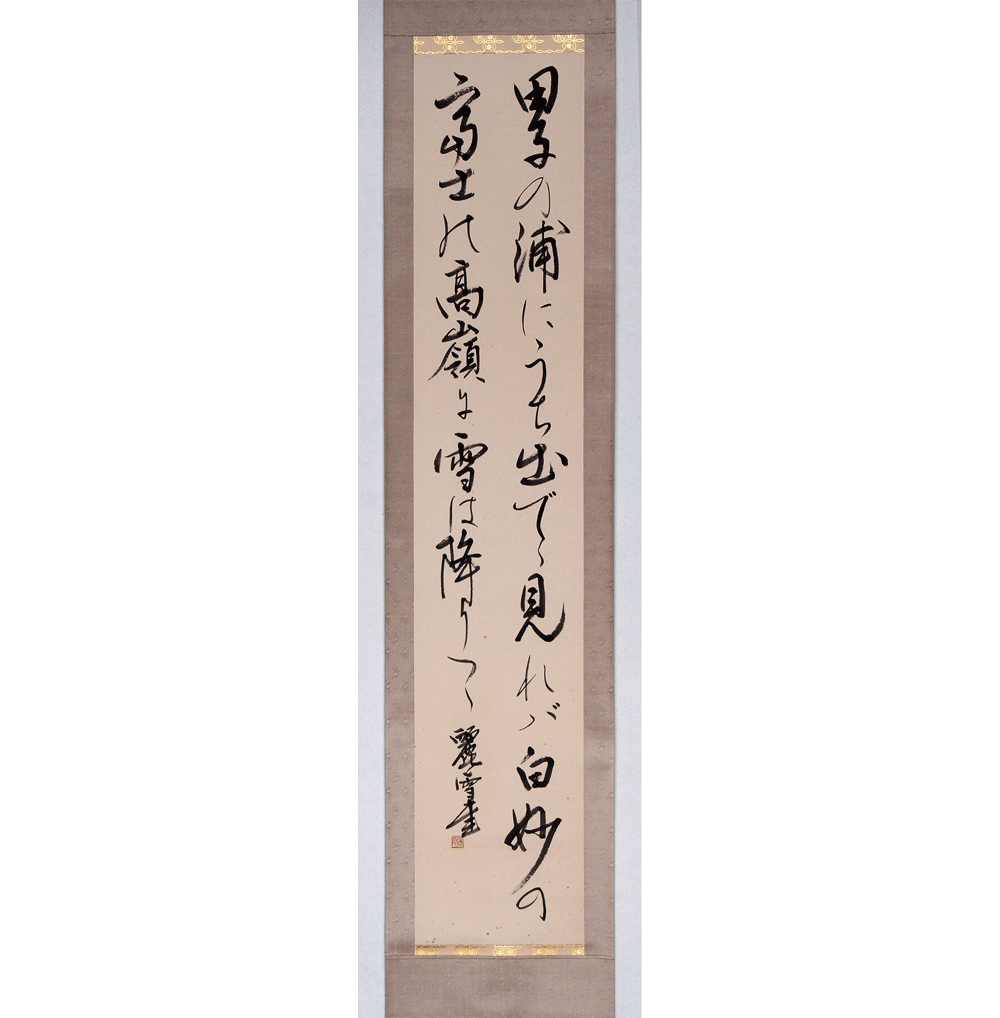 田子の浦にうち出でゝ見れバ白妙の
富士の高嶺に雪は降りつゝ
麗雪書